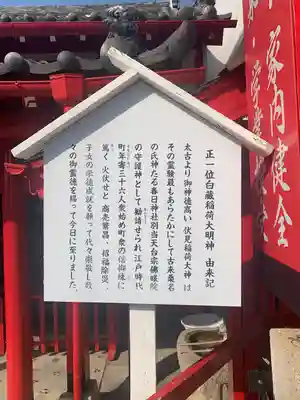 正一位白蔵稲荷大明神 由来記
太古より御神徳高い伏見稲荷大神は
その霊験最もあらたかにして古来桑名
の氏神たる春日神社別当天台宗佛眼院
の守護神として勧請せられ江戸時代
町年寄三十六人衆始め町衆の信御縁に
篤く火伏せと商売繁昌、招福除災、
子女の学徳成就を願って代々崇敬し数
々の御霊徳を賜って今日に至りました。
家内健全